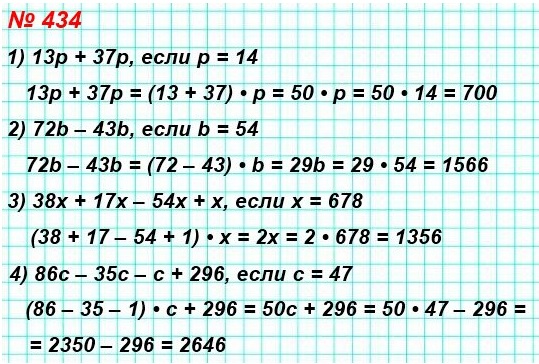 № 434
1) 13p + 37p, если p = 14
13p + 37p = (13 + 37) • p = 50 • p = 50 • 14 = 700
2) 72b – 43b, если b = 54
72b – 43b = (72 – 43) • b = 29b = 29 • 54 = 1566
3) 38x + 17x – 54x + x, если x = 678
(38 + 17 – 54 + 1) • x = 2x = 2 • 678 = 1356
4) 86c – 35c – c + 296, если c = 47
(86 – 35 – 1) • c + 296 = 50c + 296 = 50 • 47 – 296 =
= 2350 – 296 = 2646